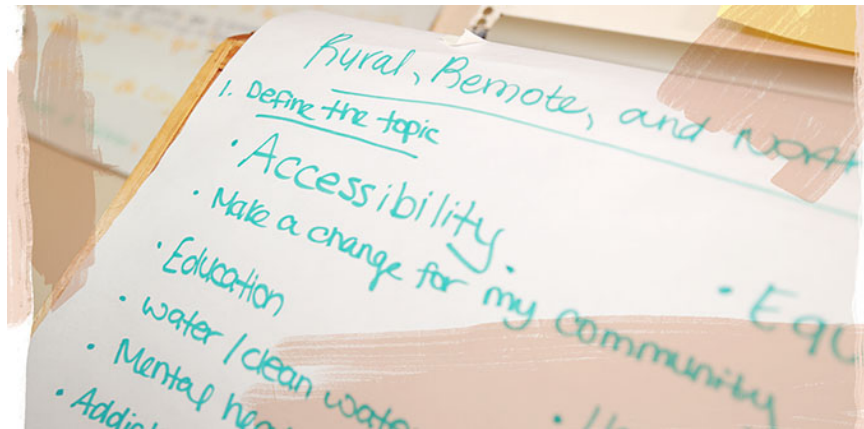 Rural, Remote, and
1. Define the topic
• Accessibility.
• Make a change for my community
• Education
• water / clean water
• Mental